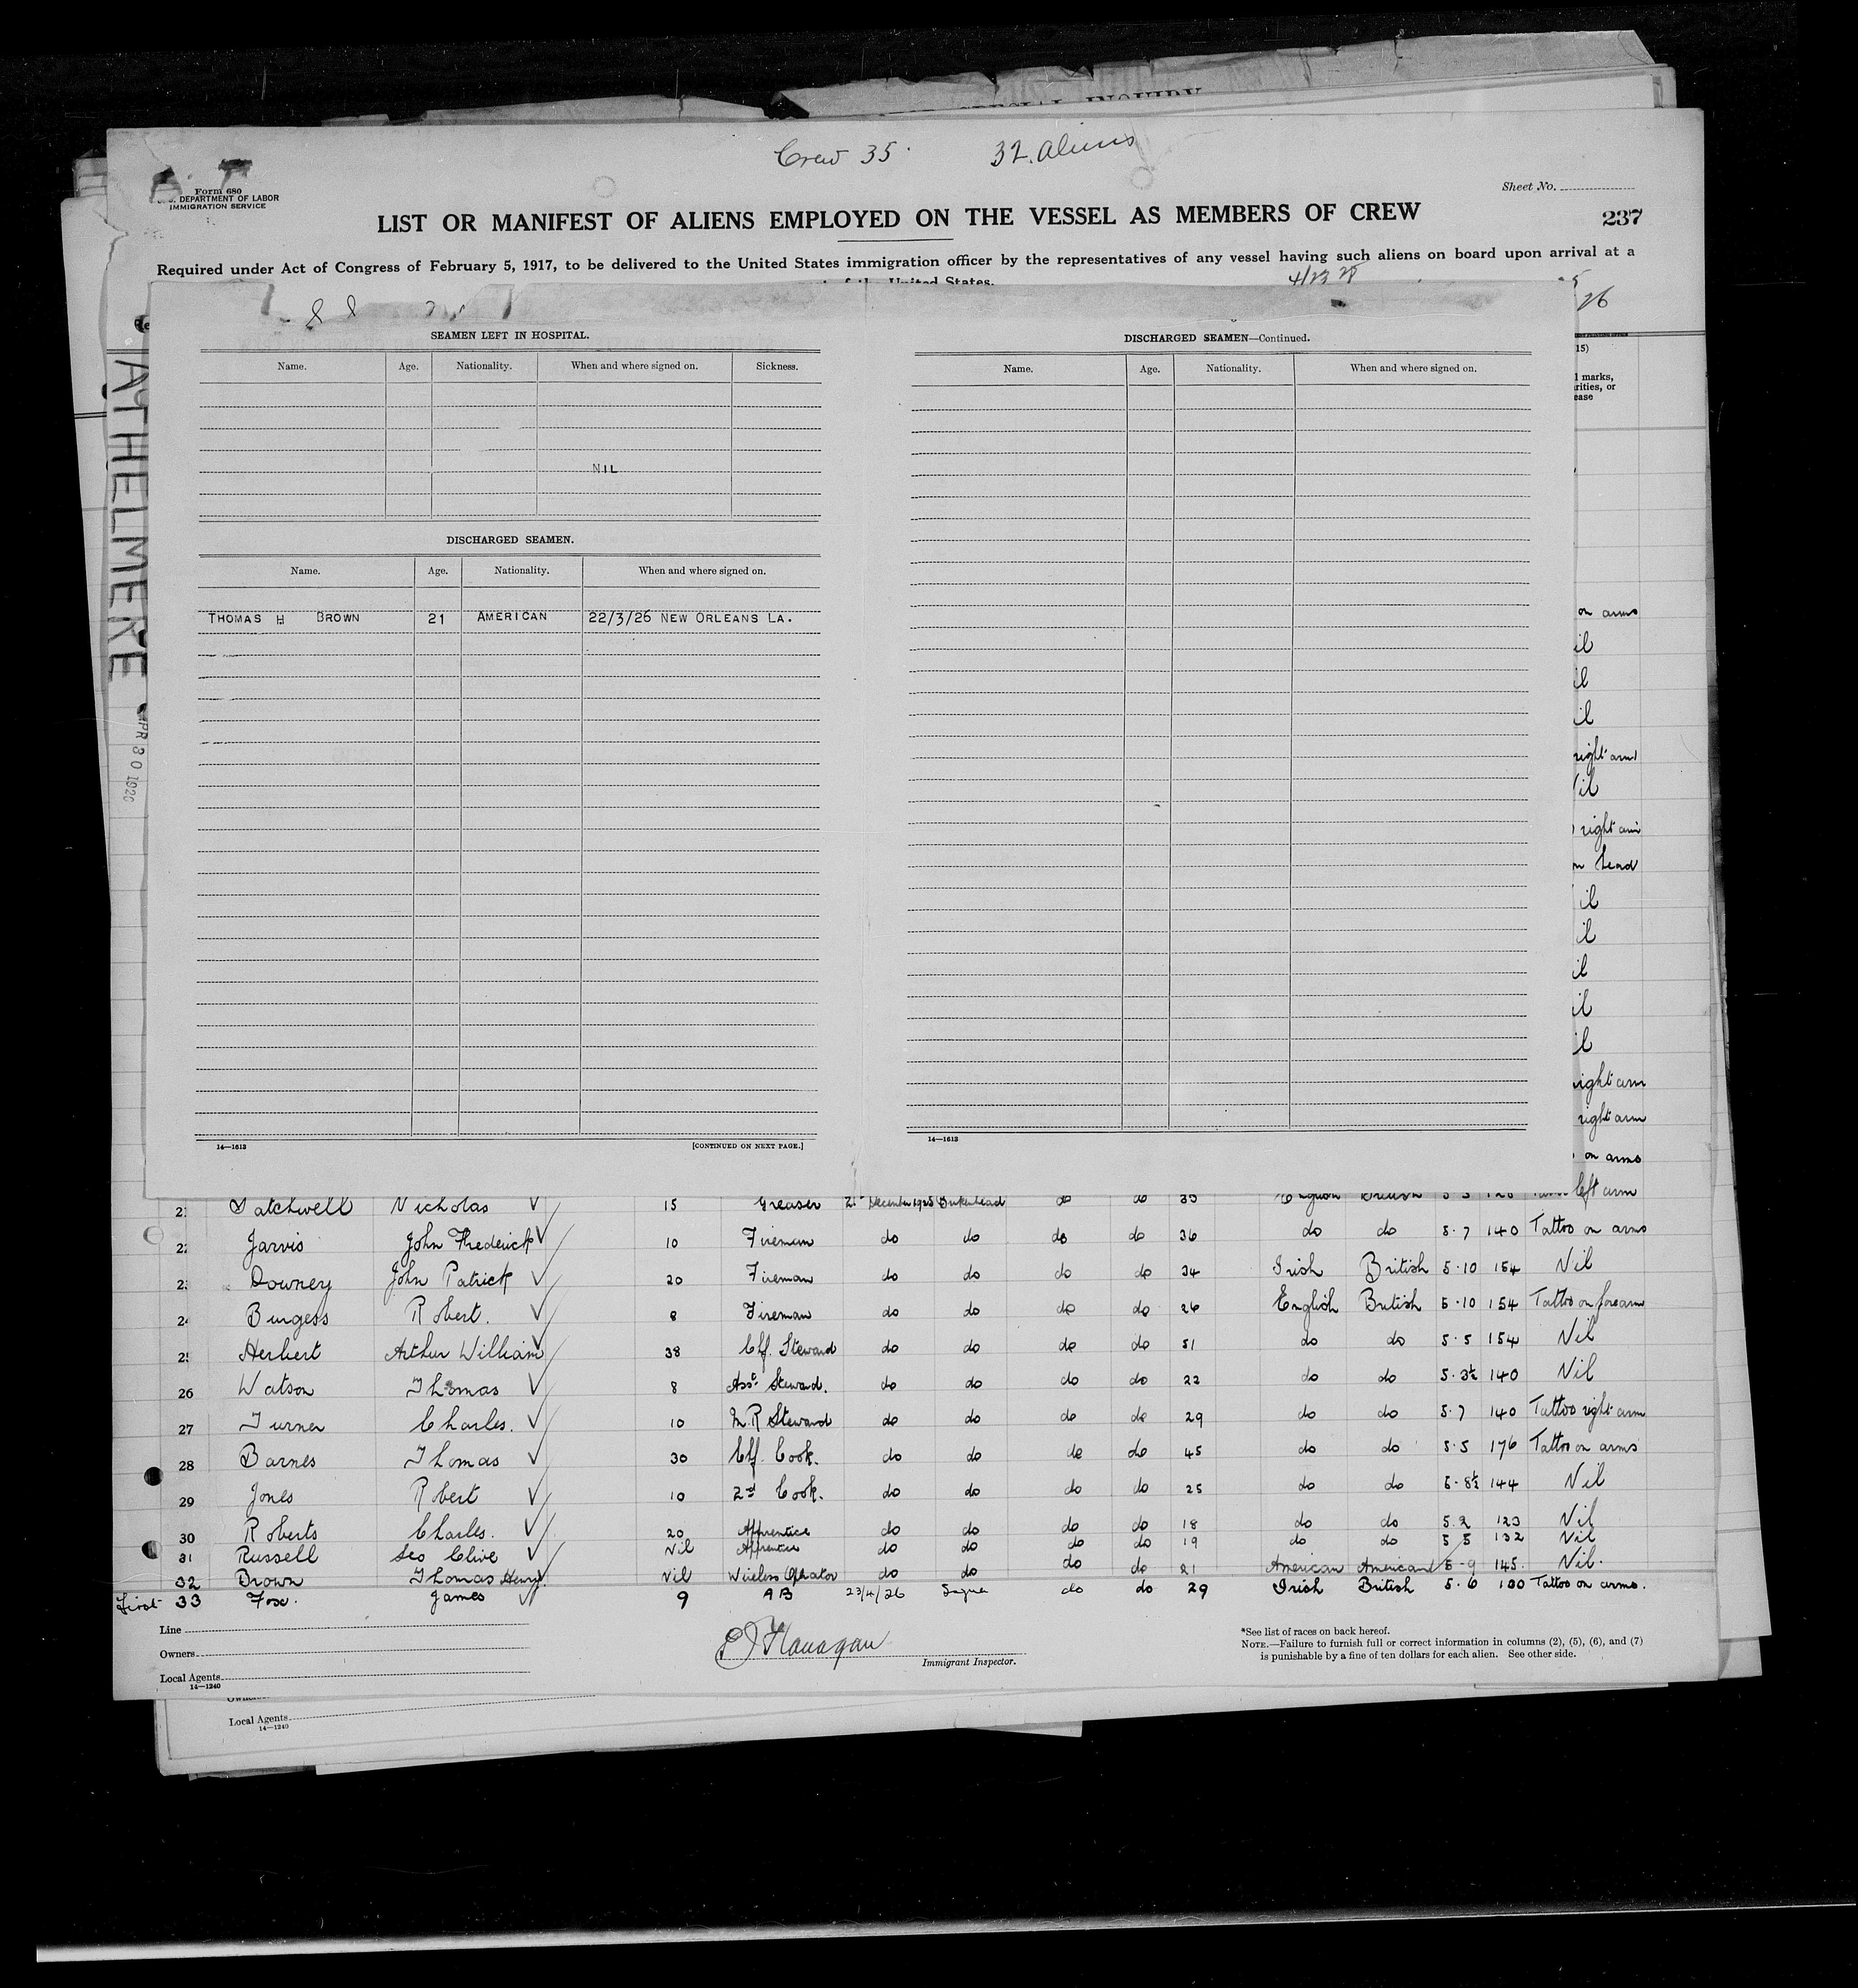 SPECIAL INQUIRY
Crew 35 32 aliens
Form 680
DEPARTMENT OF LABOR
IMMIGRATION SERVICE
Sheet No.
LIST OR MANIFEST OF ALIENS EMPLOYED ON THE VESSEL AS MEMBERS OF CREW
237
Required under Act of Congress of February 5, 1917, to be delivered to the United States immigration officer by the representatives of any vessel having such aliens on board upon arrival at a
of the United States.
26
ATHELMERE
30 1926
SEAMEN LEFT IN HOSPITAL.
Name. Age. Nationality. When and where signed on. Sickness.
NIL
DISCHARGED SEAMEN.
Name. Age. Nationality. When and where signed on.
THOMAS H BROWN 21 AMERICAN 22/3/26 NEW ORLEANS LA.
14—1613 [CONTINUED ON NEXT PAGE.]
DISCHARGED SEAMEN—Continued.
Name. Age. Nationality. When and where signed on.
14—1613
15)
marks,
rities, or
ease
on arms
il
il
il
right arm
Nil
right arm
on head
il
il
il
il
il
right arm
right arm
on arms
left arm
Satchwell Nicholas 15 Greaser December 1925 Birkenhead do do 35 English British
Jarvis John Frederick 10 Fireman do do do do 36 do do 5·7 140 Tattoo on arms
Downey John Patrick 20 Fireman do do do do 34 Irish British 5·10 154 Nil
Burgess Robert. 8 Fireman do do do do 26 English British 5·10 154 Tattoo on forearm
Herbert Arthur William 38 Chf. Steward do do do do 51 do do 5·5 154 Nil
26 Watson Thomas 8 Asst. Steward. do do do do 22 do do 5·3½ 140 Nil
27 Turner Charles. 10 M.R Steward do do do do 29 do do 5·7 140 Tattoo right arm
28 Barnes Thomas 30 Chf. Cook. do do do do 45 do do 5·5 176 Tattoo on arms
29 Jones Robert 10 2nd Cook. do do do do 25 do do 5·8½ 144 Nil
30 Roberts Charles. 20 Apprentice do do do do 18 do do 5.2 123 Nil
31 Russell Geo Clive Nil Apprentice do do do do 19 do do 5 5 132 Nil
32 Brown Thomas Henry. Nil Wireless Operator do do do do 21 American American 5·9 145. Nil.
first 33 Fox. James 9 AB 23/4/26 Sagua do do 29 Irish British 5·6 100 Tattoo on arms.
Line
Owners
Local Agents
14—1240
E J Flanagan
Immigrant Inspector.
*See list of races on back hereof.
NOTE.—Failure to furnish full or correct information in columns (2), (5), (6), and (7)
is punishable by a fine of ten dollars for each alien. See other side.
Local Agents
14—1240